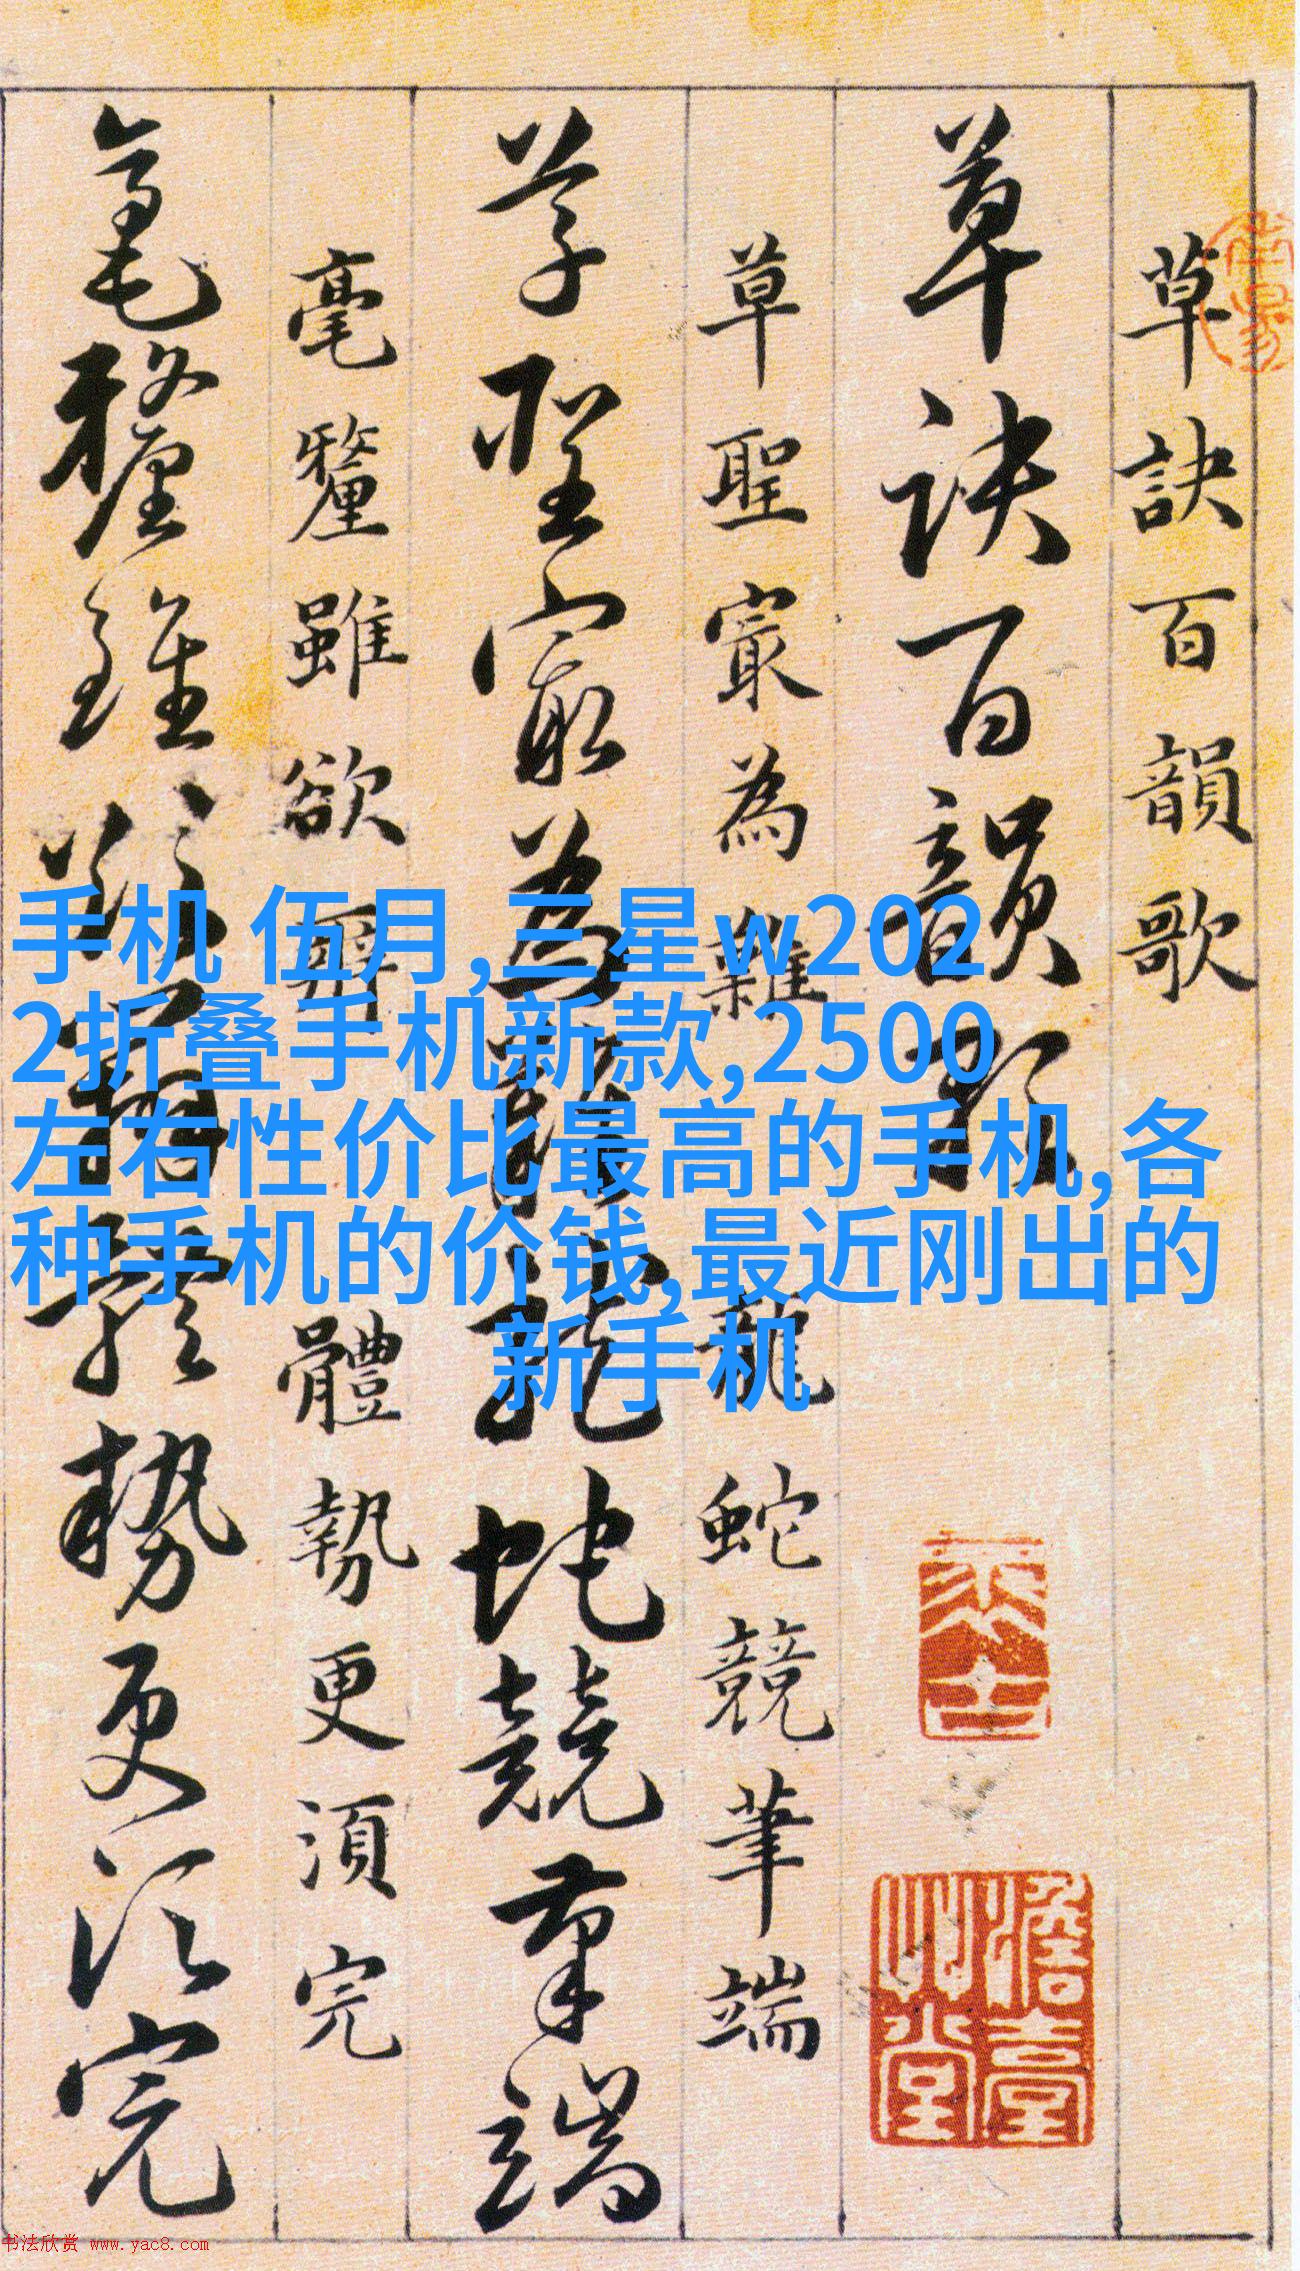 草訣百韻歌
草訣百韻歌
草聖寂為雖 龍蛇競筆端
草聖寂為難龍蛇競筆端
毫釐雖欲辨 體勢更須完
毫釐雖欲辨體勢更須完
手机 伍月,三星w202
2折叠手机新款,2500
左右性价比最高的手机,各
种手机的价钱,最近刚出的
新手机
书法欣赏 www.yac8.com